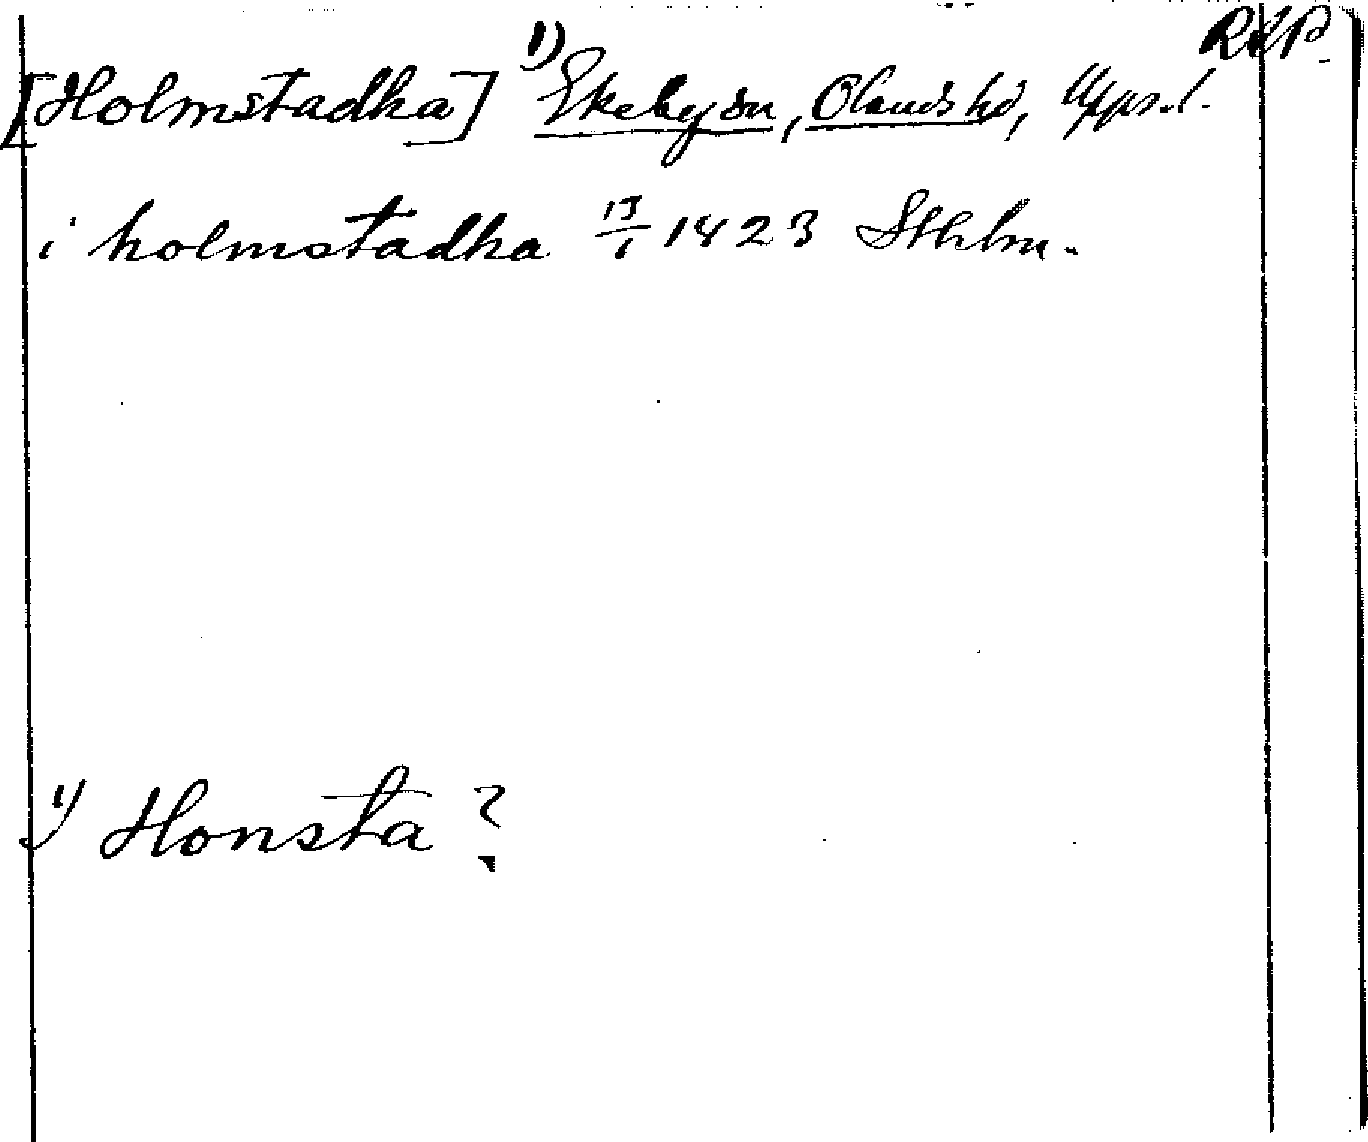 RAP.
[Holmstadha] 1) Ekeby sn, Olands hd, Upps. l.
i holmstadha 15/1 1423 Sthlm.
1) Honsta?